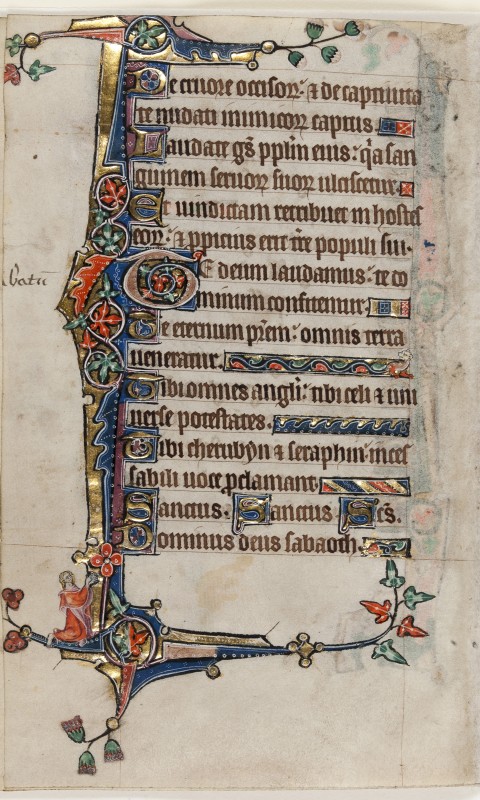 De cruore occisoꝝ: ⁊ de captiuita
te nudati inimicoꝝ capitis.
Laudate gẽs pplm̃ eius: q̃a san
guinem seruoꝝ suoꝝ ulciscetur.
Et uindictam retribuet in hostes
eoꝝ: ⁊ ꝓpicius erit tr̃e populi sui.
Te deum laudamus: te do
minum confitemur.
Te eternum pr̃em: omnis terra
ueneratur.
Tibi omnes angl̃i: tibi celi ⁊ uni
uerse potestates.
Tibi cherubyn ⁊ seraphin: inces
sabili uoce ꝓclamant.
Sanctus. Sanctus Sc̃s.
Dominus deus sabaoth.